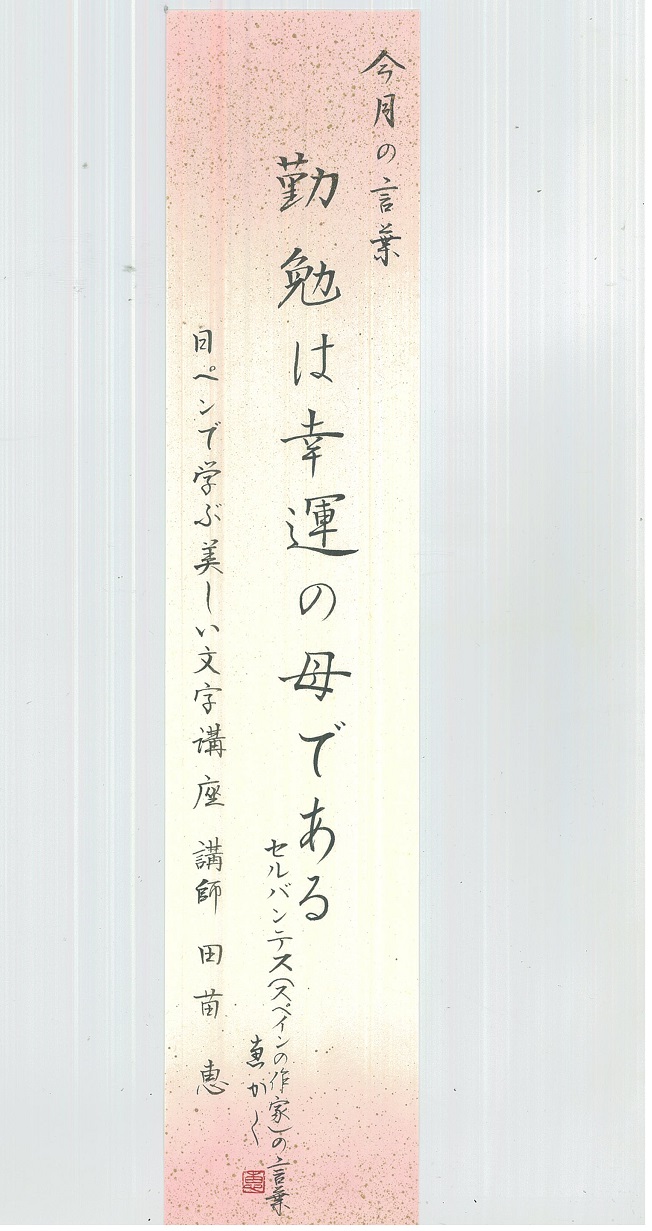 今月の言葉
勤勉は幸運の母である
セルバンテス(スペインの作家)の言葉
恵かく
恵
日ペンで学ぶ美しい文字講座 講師 田苗 恵